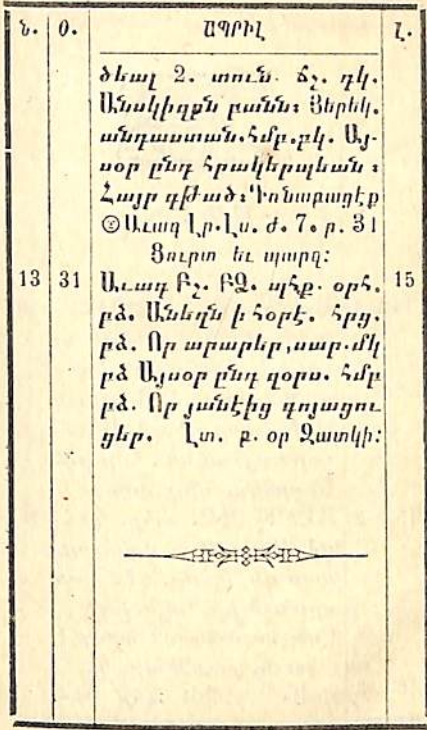 ն. օ. ԱՊՐԻԼ լ.
ձեալ 2. տուն. ճշ. դկ.
Անսկիզբն բանն։ Յերեկ.
անդաստան. հմբ. բկ. Այ-
սօր ընդ հրակերպեան։
Հայր գթած։ Դռնաբացէք
Աւագ Լր. Լս. ժ. 7. ր. 31
Ցուրտ եւ պարզ։
13 31 Աւագ Բշ. ԲՁ. պհք. օրհ. 15
բձ. Անեղն ի հօրէ. հրց.
բձ. Որ արարեր, սար. մկ
բձ Այսօր ընդ դօրս. հմբ
բձ. Որ յանէից գոյացու
ցեր. Լտ. ք. օր Զատկի։